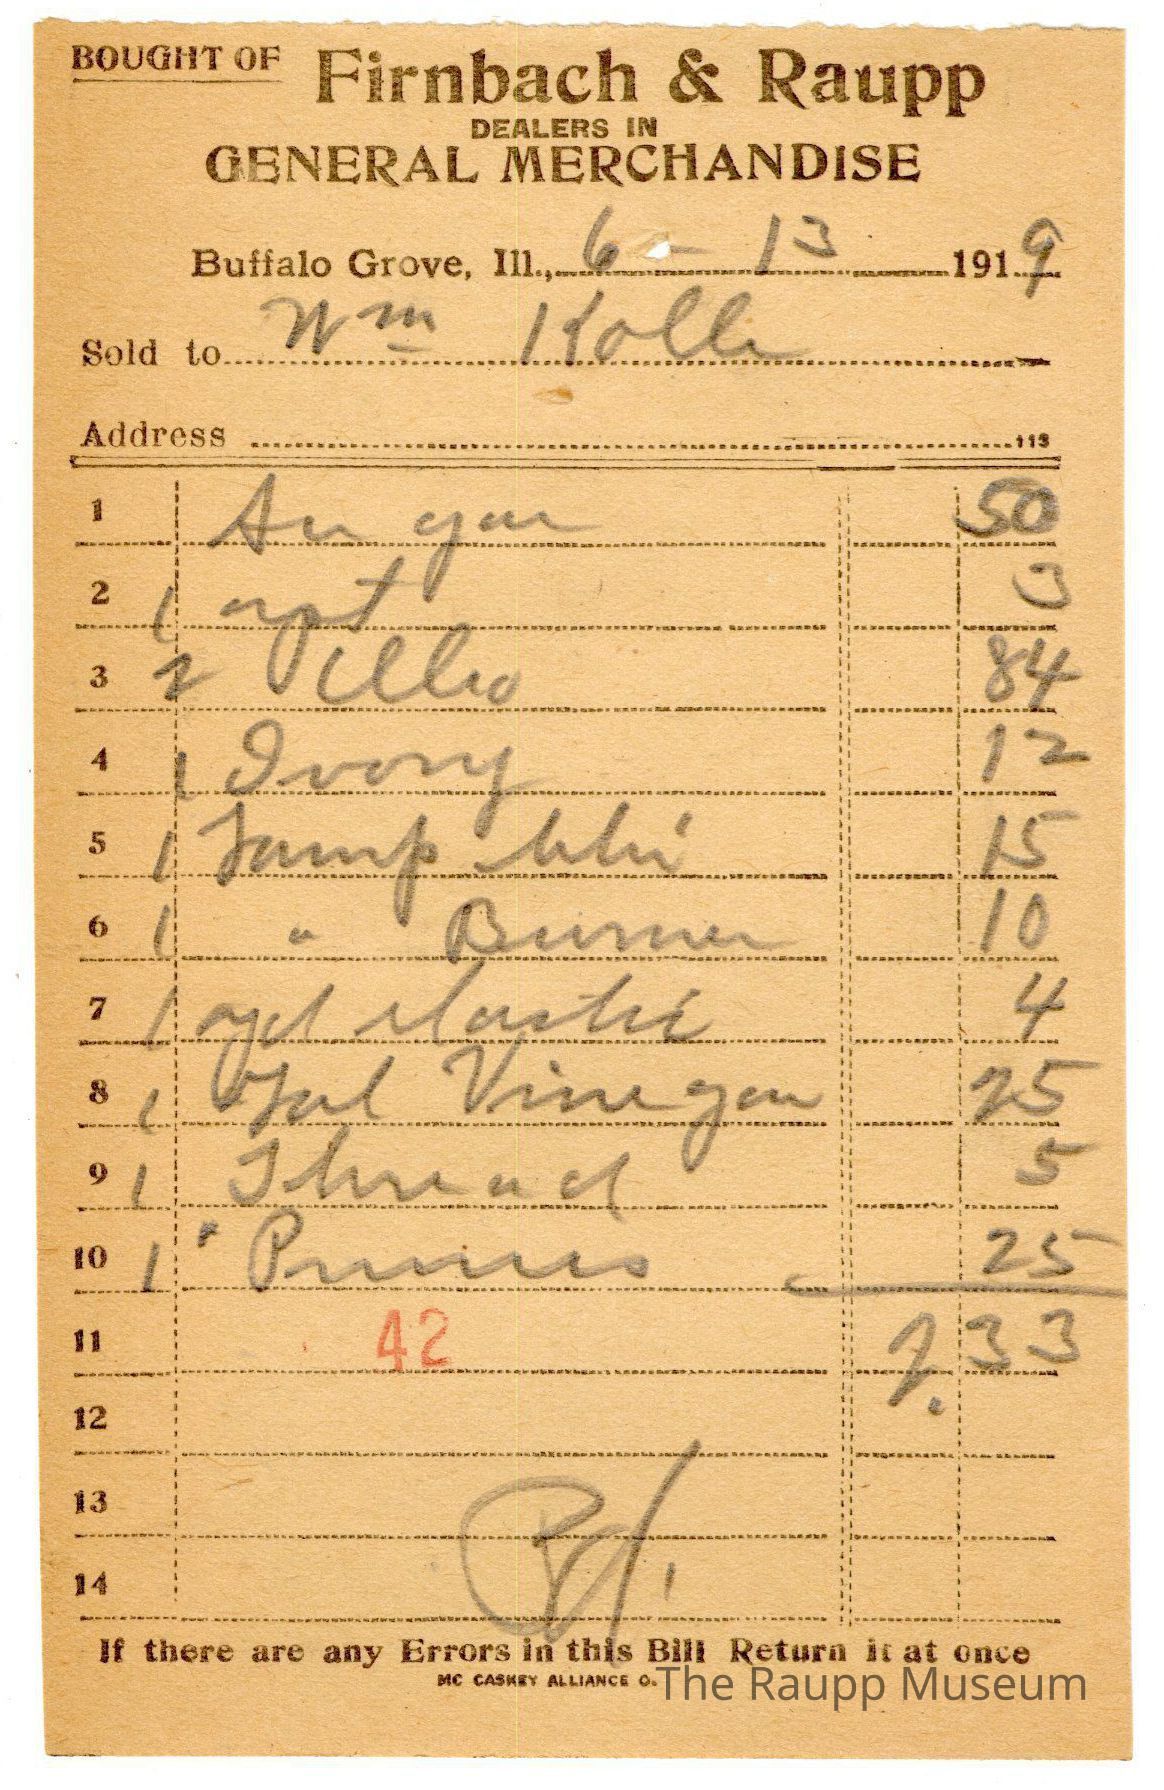 BOUGHT OF Firnbach & Raupp
DEALERS IN
GENERAL MERCHANDISE
Buffalo Grove, Ill., 6 - 13 1919
Sold to Wm Kolle
Address 113
1 50
2 1 3
3 2 84
4 1 Ivory 12
5 1 Lamp 15
6 1 " Burner 10
7 1 yd elastic 4
8 1 Gal Vinegar 25
9 1 Thread 5
10 1 " Prunes 25
11 42 2.33
12
13
14 Pd.
If there are any Errors in this Bill Return it at once
MC CASKEY ALLIANCE O.
The Raupp Museum